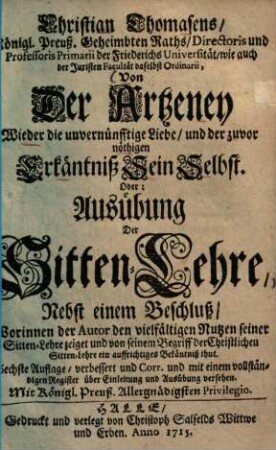 Christian Thomasens/
Königl. Preuß. Geheimbten Raths/ Directoris und
Professoris Primarii der Friederichs Universität/ wie auch
der Juristen Facultät daselbst Ordinarii,
Von
Der Artzeney
Wieder die unvernünfftige Liebe/ und der zuvor
nöthigen
Erkäntniß Sein Selbst.
Oder:
Ausübung
Der
Sitten-Lehre/
Nebst einem Beschluß/
Worinnen der Autor den vielfältigen Nutzen seiner
Sitten-Lehre zeiget und von seinem Begriff der Christlichen
Sitten-Lehre ein auffrichtiges Bekäntniß thut.
Sechste Auflage/ verbessert und Corr. und mit einem vollstän-
digen Register über Einleitung und Ausübung versehen.
Mit Königl. Preuß. Allergnädigsten Privilegio.
HALLE/
Gedruckt und verlegt von Christoph Salfelds Wittwe
und Erben. Anno 1715.